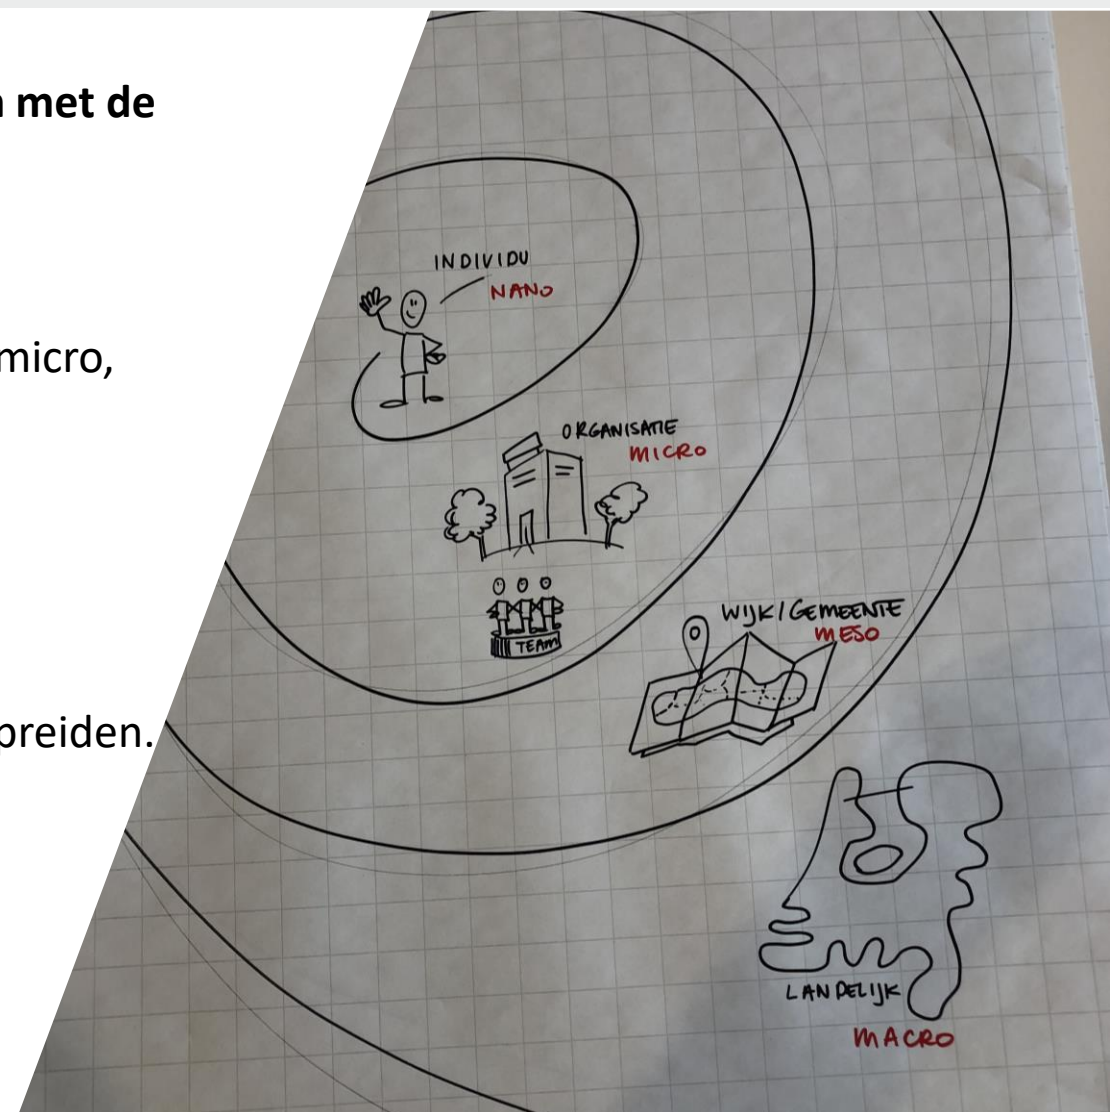 met de
micro,
preiden.
INDIVIDU
NANO
ORGANISATIE
MICRO
TEAM
WIJK/GEMEENTE
MESO
LANDELIJK
MACRO